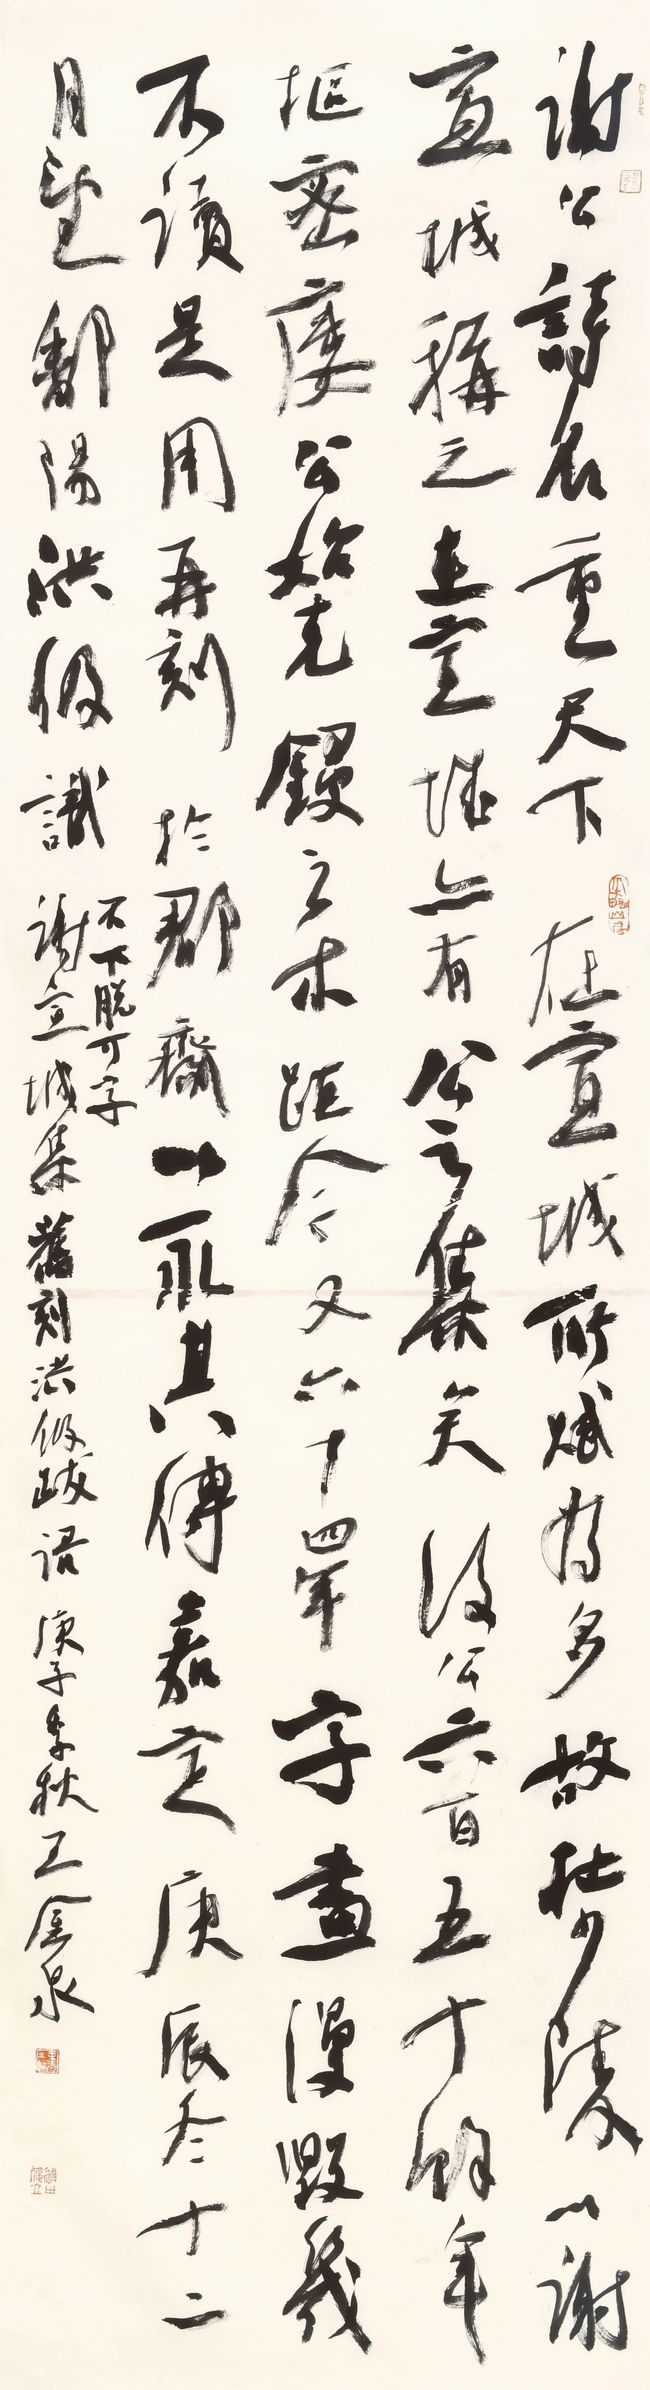 謝公詩名重天下在宣城所賦為多故杜少陵以謝
宣城稱之在宣城亦有公之集矣後公六百五十餘年
樞密樓公始克鋟之木距今又六十四年字畫漫毀幾
不讀是用再刻於郡齋以永其傳嘉定庚辰冬十二
月望鄱陽洪伋識
不下脫可字
謝宣城集舊刻洪伋跋語庚子季秋王金泉